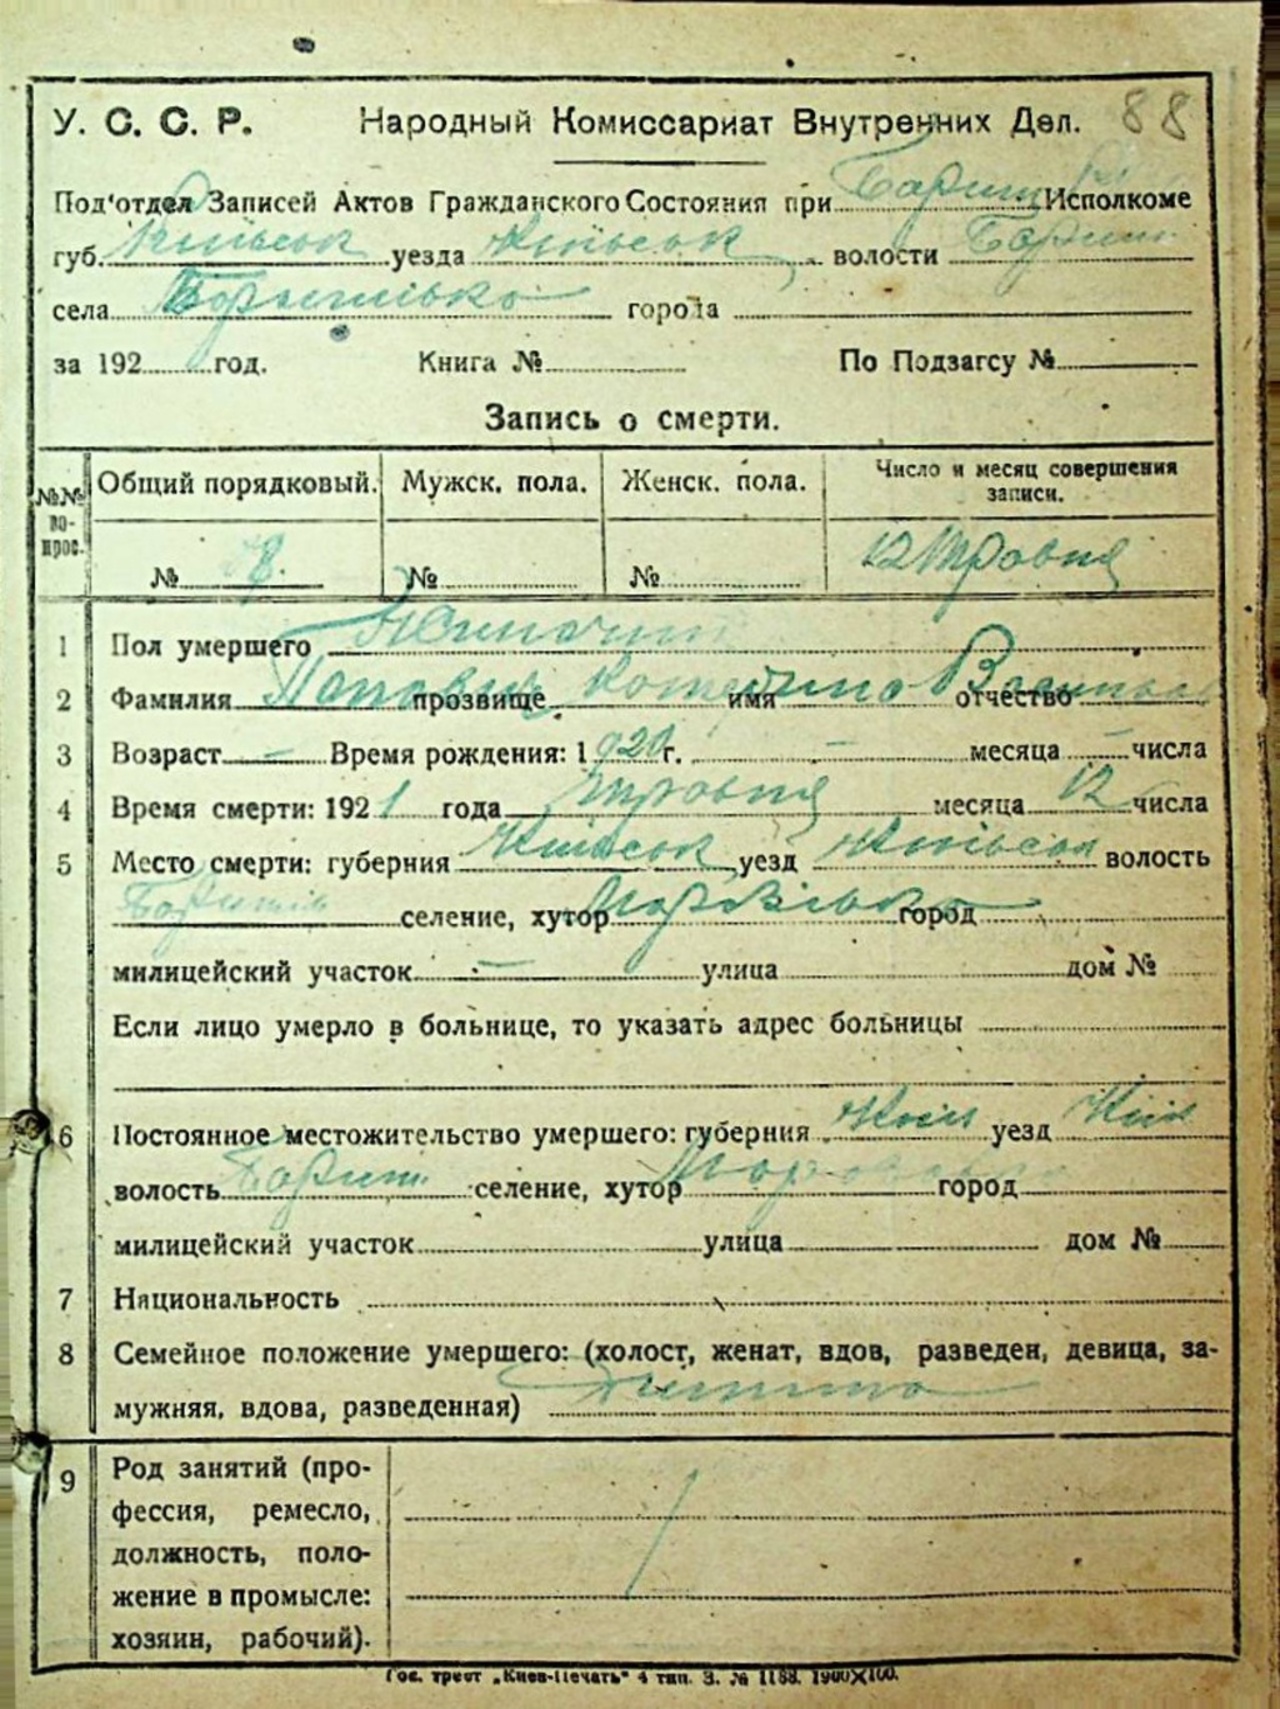 У. С. С. Р. Народный Комиссариат Внутренних Дел. 88
Под'отдел Записей Актов Гражданского Состояния при Бариш Исполкоме
губ. Київськ уезда Київськ волости Бариш
села Баришівка города
за 192 год. Книга № По Подзагсу №
Запись о смерти.
№№ во-прос. Общий порядковый. Мужск. пола. Женск. пола. Число и месяц совершения записи.
№ 8. № № 12 травня
1 Пол умершего
2 Фамилия Попович прозвище Катерина имя отчество
3 Возраст — Время рождения: 1920 г. — месяца — числа
4 Время смерти: 1921 года травня месяца 12 числа
5 Место смерти: губерния Київськ уезд Київськ волость
Баришів селение, хутор город
милицейский участок — улица дом №
Если лицо умерло в больнице, то указать адрес больницы
6 Постоянное местожительство умершего: губерния Київ уезд Київ
волость Бариш. селение, хутор город
милицейский участок улица дом №
7 Национальность
8 Семейное положение умершего: (холост, женат, вдов, разведен, девица, за-
мужняя, вдова, разведенная) Дитина
9 Род занятий (про-
фессия, ремесло,
должность, поло-
жение в промысле:
хозяин, рабочий).
Гос. трест „Киев-Печать" 4 тип. З. № 1188. 1900X100.